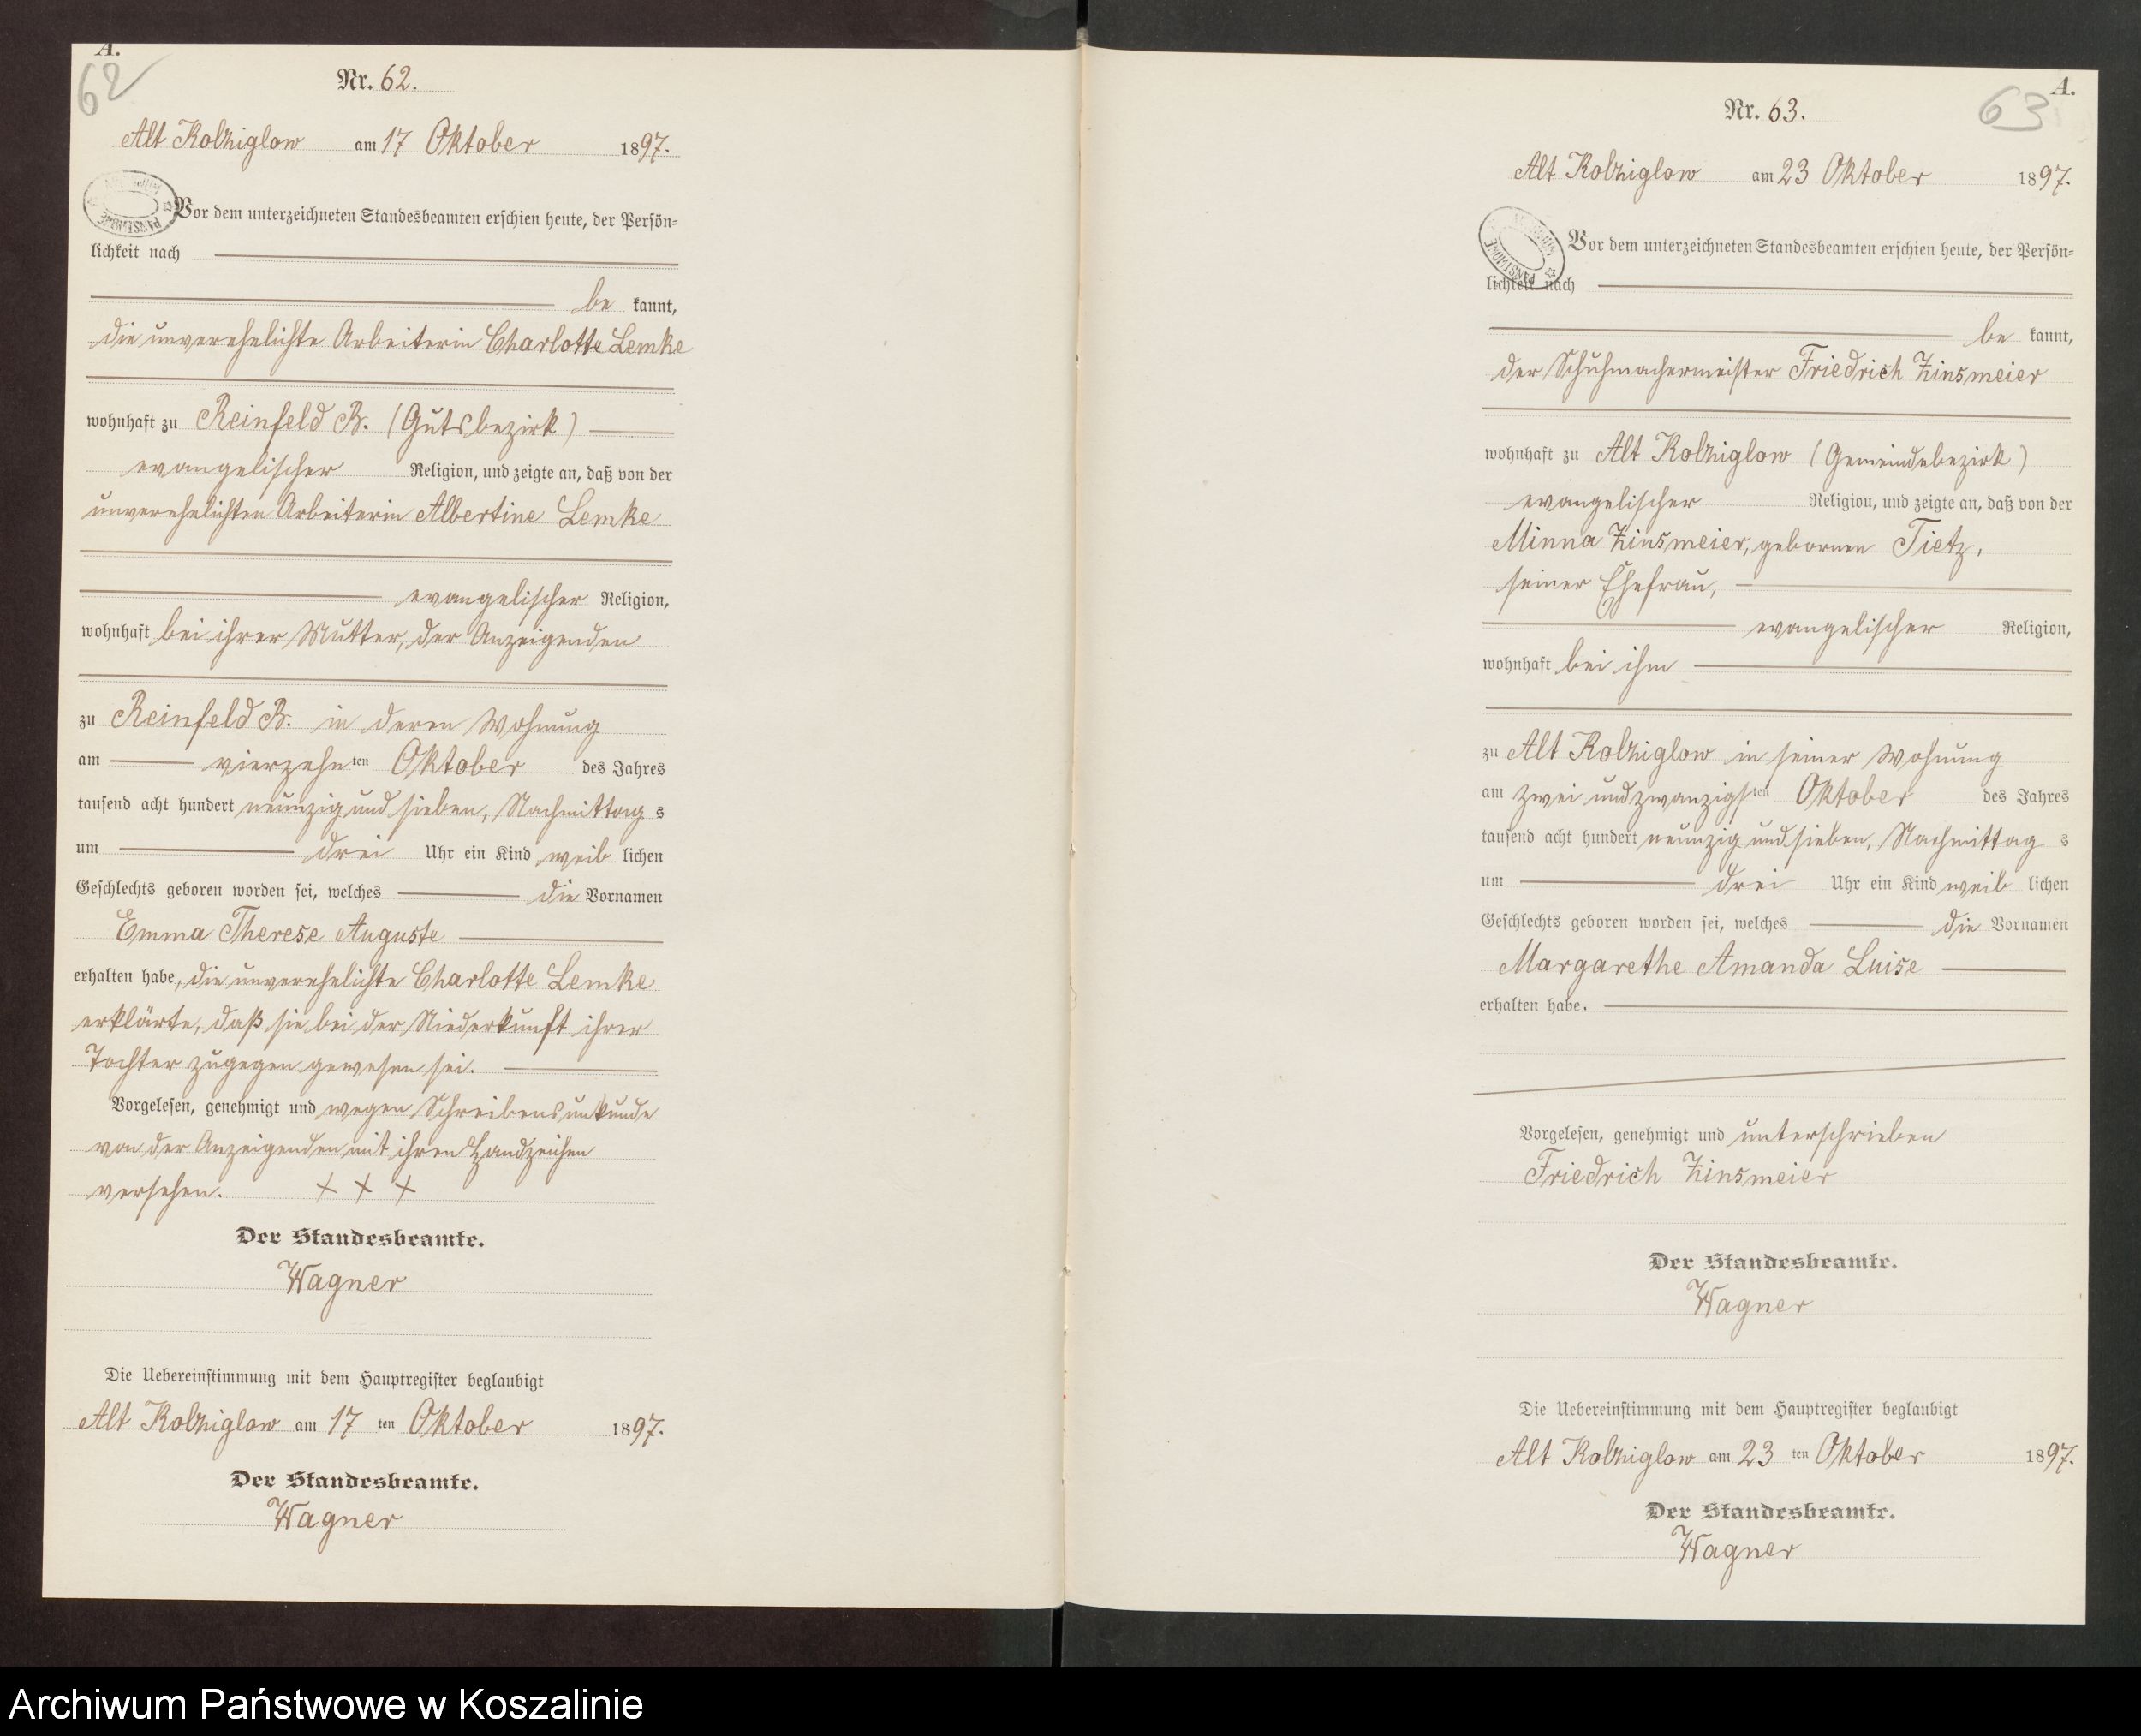 A.
62
Nr. 62.
Alt Kolziglow am 17 Oktober 1897.
Vor dem unterzeichneten Standesbeamten erschien heute, der Persön=
lichkeit nach
be kannt,
die unverehelichte Arbeiterin Charlotte Lemke
wohnhaft zu Reinfeld B. (Gutsbezirk)
evangelischer Religion, und zeigte an, daß von der
unverehelichten Arbeiterin Albertine Lemke
evangelischer Religion,
wohnhaft bei ihrer Mutter, der Anzeigenden
zu Reinfeld B. in deren Wohnung
am vierzehnten Oktober des Jahres
tausend acht hundert neunzig und sieben, Nachmittags
um drei Uhr ein Kind weiblichen
Geschlechts geboren worden sei, welches die Vornamen
Emma Therese Auguste
erhalten habe, die unverehelichte Charlotte Lemke
erklärte, daß sie bei der Niederkunft ihrer
Tochter zugegen gewesen sei.
Vorgelesen, genehmigt und wegen Schreibensunkunde
von der Anzeigenden mit ihren Handzeichen
versehen. + + +
Der Standesbeamte.
Wagner
Die Uebereinstimmung mit dem Hauptregister beglaubigt
Alt Kolziglow am 17 ten Oktober 1897.
Der Standesbeamte.
Wagner
A.
63
Nr. 63.
Alt Kolziglow am 23 Oktober 1897.
Vor dem unterzeichneten Standesbeamten erschien heute, der Persön=
lichkeit nach
be kannt,
der Schuhmachermeister Friedrich Zinsmeier
wohnhaft zu Alt Kolziglow (Gemeindebezirk)
evangelischer Religion, und zeigte an, daß von der
Minna Zinsmeier, gebornen Tietz,
seiner Ehefrau,
evangelischer Religion,
wohnhaft bei ihm
zu Alt Kolziglow in seiner Wohnung
am zwei und zwanzigsten Oktober des Jahres
tausend acht hundert neunzig und sieben, Nachmittags
um drei Uhr ein Kind weiblichen
Geschlechts geboren worden sei, welches die Vornamen
Margarethe Amanda Luise
erhalten habe.
Vorgelesen, genehmigt und unterschrieben
Friedrich Zinsmeier
Der Standesbeamte.
Wagner
Die Uebereinstimmung mit dem Hauptregister beglaubigt
Alt Kolziglow am 23 ten Oktober 1897.
Der Standesbeamte.
Wagner
Archiwum Państwowe w Koszalinie